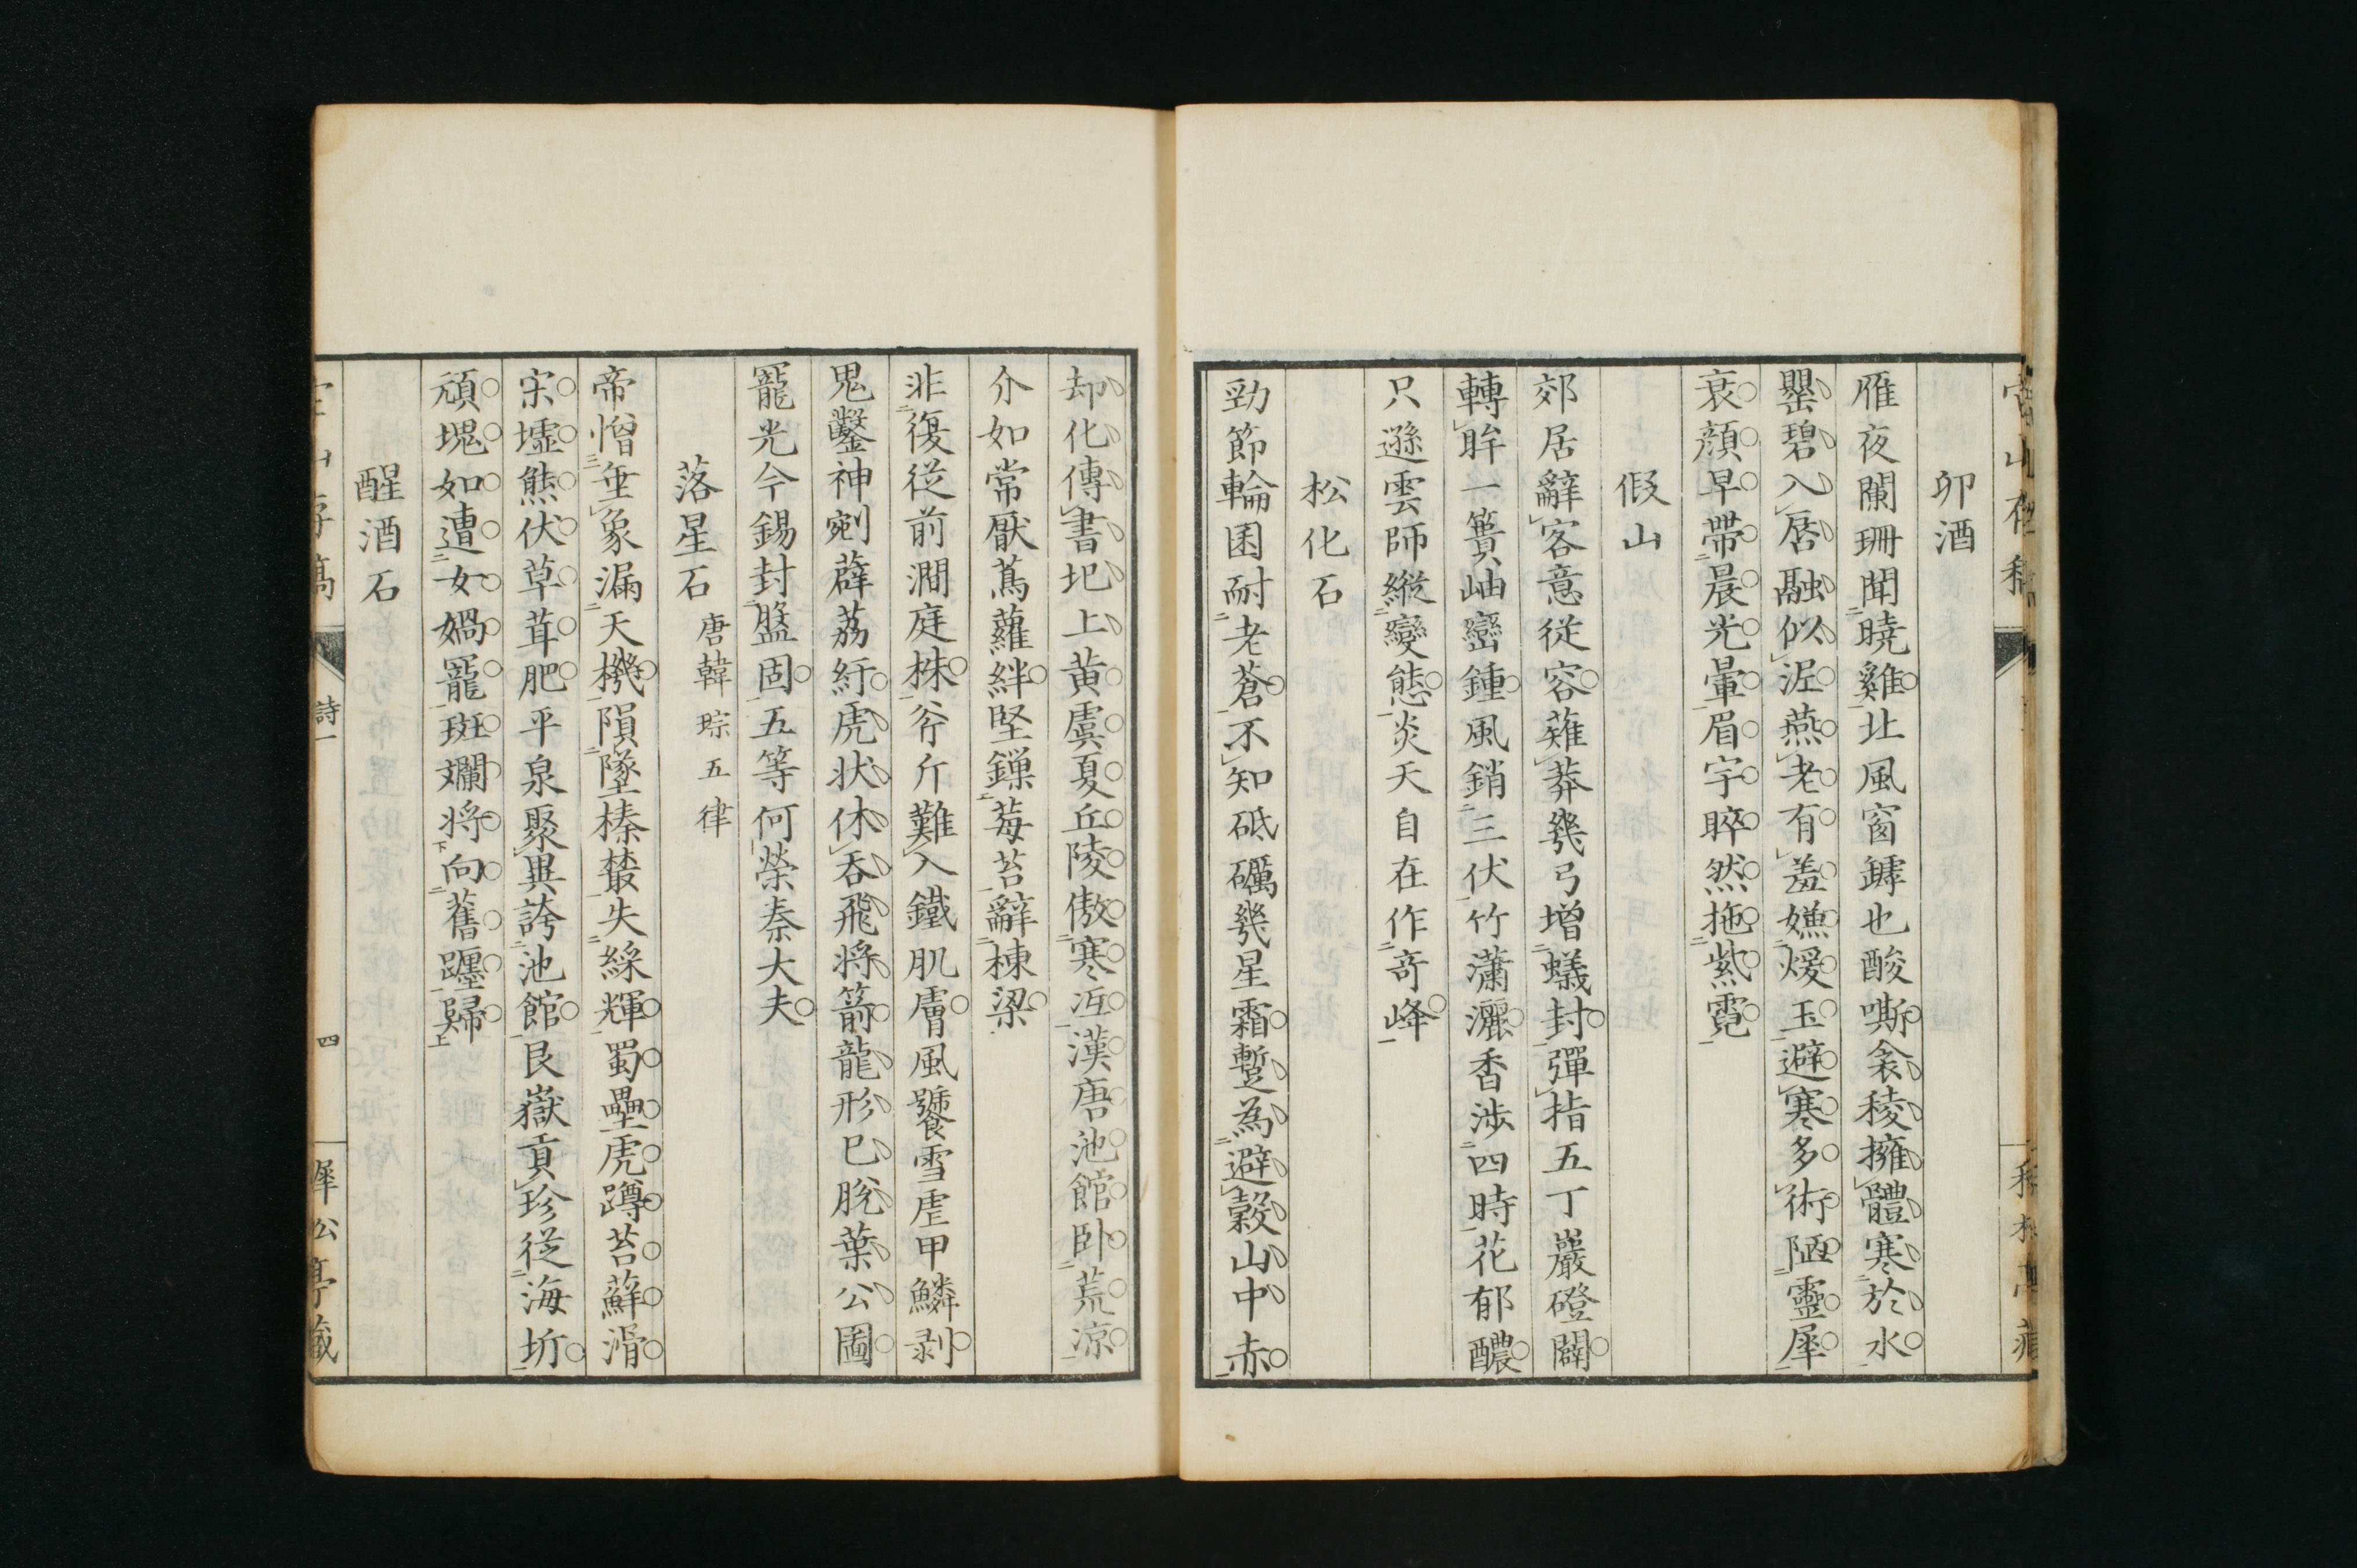 卯酒
雁夜闌珊聞曉雞北風窗罅也酸嘶衾稜擁體寒於水
罌碧入唇融似泥燕老有羞嫌煖玉避寒多術陋靈犀
衰顏早帶晨光暈眉宇睟然拖紫霓
假山
郊居辭客意從容薙莽幾弓增蟻封彈指五丁巖磴闢
轉眸一簣岫巒鍾風銷三伏竹瀟灑香涉四時花郁醲
只遜雲師縱變態炎天自在作奇峰
松化石
勁節輪囷耐老蒼不知砥礪幾星霜蹔為避穀山中赤
却化傳書圯上黃虞夏丘陵傲寒沍漢唐池館臥荒涼
介如常厭蔦蘿絆堅鏁莓苔辭棟梁
非復從前澗庭株斧斤難入鐵肌膚風饕雪虐甲鱗剥
鬼鑿神剜薜荔紆虎狀休吞飛將箭龍形已脫葉公圖
寵光今錫封盤固五等何榮秦大夫
落星石 唐韓琮五律
帝憎垂象漏天機隕墜榛藂失綵輝蜀壘虎蹲苔蘚滑
宋墟熊伏草茸肥平泉聚異誇池館艮嶽貢珍從海圻
頑塊如遭女媧寵斑斕將向舊躔歸
醒酒石
詩一
四